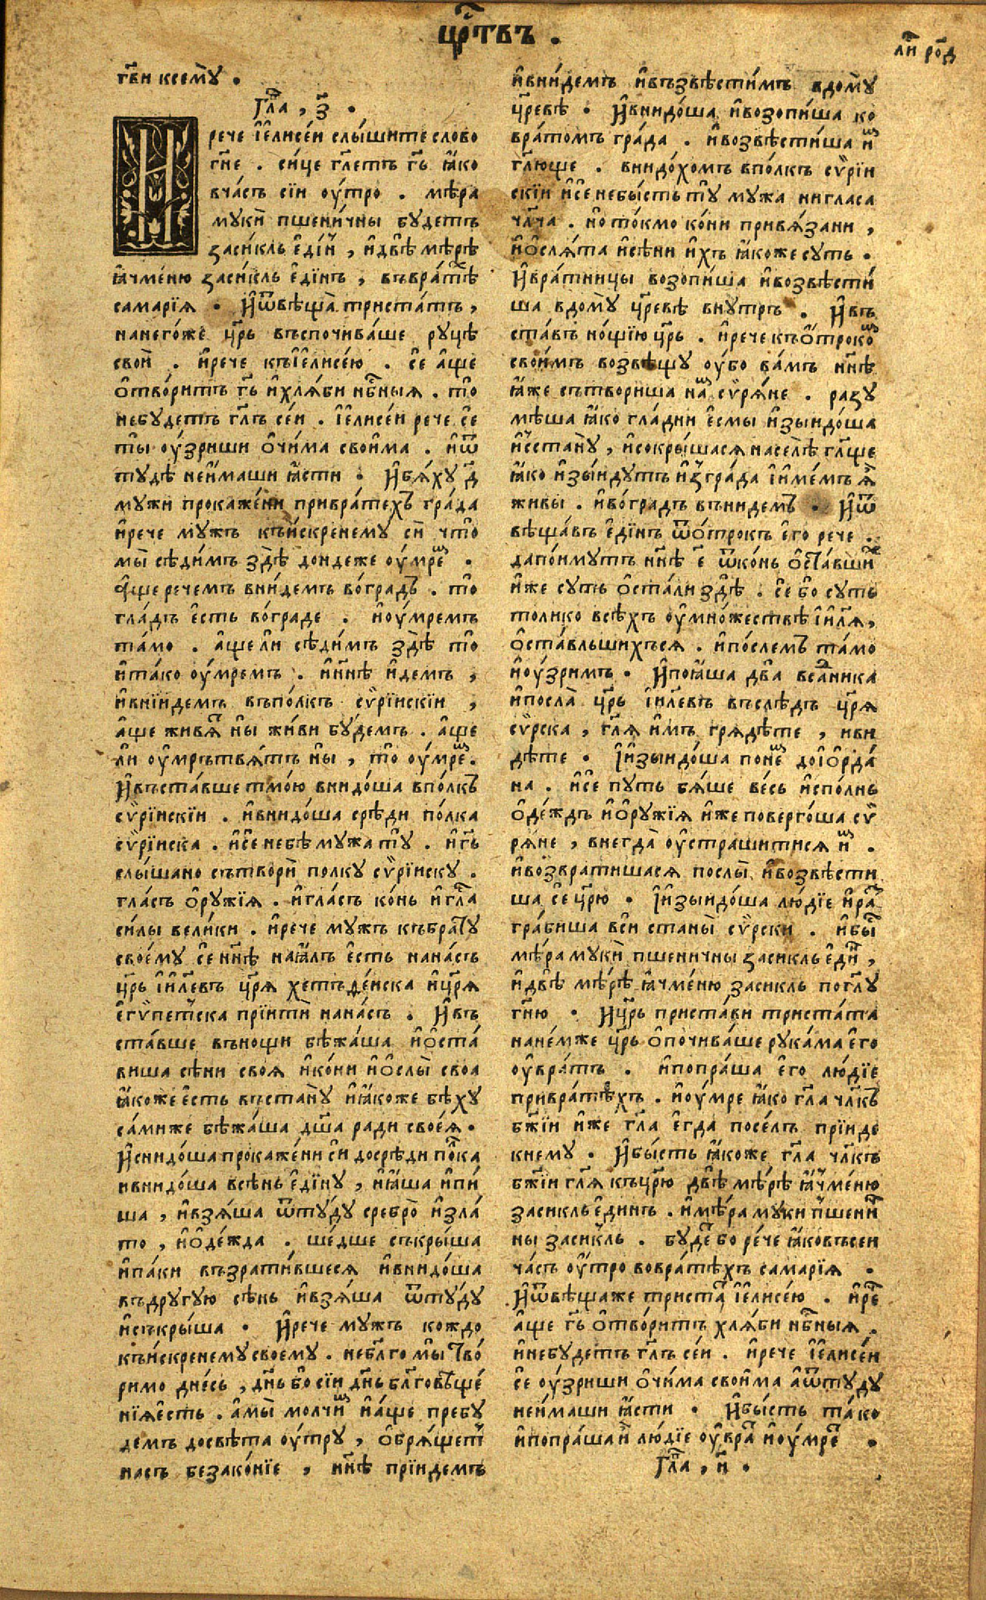 црⷭ҇твъ .
гв҃и ксемꙋ̀ .
Гла҃ , з҃ .
И рече і҆елисе́и слы́шите сло́во
гн҃е . си́це гл҃етъ гь҃ ꙗ҆́ко
вча́съ сїи оу҆́тро . мѣ́ра
мꙋки̇̀ пшени́чны бꙋ́детъ
засикль є҆ди́нъ , и҆двѣ̀ мѣ́рѣ
ꙗ҆чме́ню засикль є҆ди́нъ , въврате́хъ
самарїѧ . И҆ѿвѣща̀ триста́тъ ,
нанего́же цр҃ь въспочива́ше рꙋцѣ̀
свое́и . и҆рече къі҆елисе́ю . се а҆́ще
ѻ҆твори́тъ гь҃ и҆хлѧ́би нбⷭ҇ныѧ . то̀
небꙋ́детъ гл҃ъ се́и . і҆елисе́и рече сѐ
ты̀ оу҆́зриши ѻ҆чи́ма свои́ма . и҆ѿ
тꙋдѣ неи҆́маши ꙗ҆́сти . И҆бѧ́хꙋ д҃
мꙋжи прокаже́ни привра́техъ гра́да
и҆рече мꙋжъ къи҆́скренемꙋ сѝ что̀
мы̀ сѣди́мъ здѣ̀ до́ндеже оу҆́мремъ .
а҆́ще рече́мъ вни́демъ во́градъ . то̀
гла́дъ є҆́сть во́граде . и҆оу҆́мремъ
та́мо . а҆́ще ли сѣди́мъ здѣ̀ то̀
и҆та́ко оу҆́мремъ . и҆ны́нѣ и҆де́мъ ,
и҆вни́идемъ въпо́лкъ сѵ҆рі́искїи ,
а҆́ще живѧ́тъ ны̀ жи́ви бꙋ́демъ . а҆́ще
ли оу҆мръ́твѧтъ ны̀ , то̀ оу҆́мремъ .
И҆въста́вше тмо́ю внидо́ша впо́лкъ
сѵ҆рі́искїи . и҆внидо́ша срѣди́ по́лка
сѵ҆рі́иска . и҆се́ не бѣ̀ мꙋжа тꙋ̀ . и҆гь҃
слы́шано сътворѝ полкꙋ̀ сѵ҆рі́искꙋ .
гла́съ ѻ҆рꙋ́жїѧ . и҆гла́съ ко́нь и҆гла́съ
си́лы вели́ки . и҆рече мꙋжъ къбра́тꙋ
своемꙋ̀ сѐ ны́нѣ наѧ҆́лъ є҆́сть нана́съ
цр҃ь і҆и҃левъ цр҃ѧ хетъѳе́йска и҆цр҃ѧ
є҆гѵ́петска прїити̇̀ нана́съ . И҆въ
ста́вше въно́щи бѣжа́ша и҆ѻ҆ста́
виша сѣни своѧ̀ и҆ко́ни и҆ѻ҆слы̀ своа
ꙗ҆́коже є҆́сть въстанꙋ̀ и҆ꙗ҆́коже бѣ́хꙋ
са́миже бѣжа́ша дш҃а ради своеѧ̀ .
И҆снидо́ша прокаже́ни сі́и досрѣ́ди по́лка
ивнидо́ша всѣ́нь є҆ди́нꙋ , и҆ꙗ҆́ша и҆пи́
ша , и҆взѧ́ша ѿтꙋ́дꙋ сребро̀ и҆зла́
то , и҆ѻ҆де́жда . ше́дше съкры́ша
и҆па́ки възрати́вшесѧ и҆внидо́ша
въдрꙋ́гꙋю сѣ́нь и҆взѧ́ша ѿтꙋ́дꙋ
и҆съкры́ша . И҆рече мꙋжъ ко́ждо
къи҆́скренемꙋ своемꙋ̀ . небл҃го мы̀ тво́
римо дне́сь , дн҃ь бо сїи дн҃ь бл҃говѣще́
нїѧ є҆́сть . а҆мы̀ молчи́мъ и҆а҆́ще пребꙋ́
демъ досвѣ́та оу҆́трꙋ , ѻ҆брѧ́щетъ
насъ беззако́нїе , ны́нѣ прїидемъ
и҆вни́демъ и҆възвѣсти́мъ вдомꙋ̀
цр҃евѣ . И҆внидо́ша и҆возопи́ша ко
врато́мъ гра́да . и҆возвѣсти́ша и҆мъ
гл҃юще . внидо́хомъ впо́лкъ сѵ҆рі́и
скїи и҆сѐ небы́сть тꙋ̀ мꙋжа нигласа
чл҃ча . но то́кмо ко́ни привѧ́зани ,
и҆ѻ҆слѧ́та и҆сѣ́ни и҆́хъ ꙗ҆́коже сꙋть .
И҆вра́тницы возопи́ша и҆возвѣсти́
ша вдомꙋ̀ цр҃евѣ внꙋ́тръ . И҆въ
ста́въ но́щїю цр҃ь . и҆рече къѻ҆троко́мъ
свои́мъ возвѣщꙋ̀ оу҆́бо ва́мъ ны́нѣ
ꙗ҆́же сътвори́ша на́мъ сѵ҆рѧ́не . разꙋ
мѣ́ша ꙗ҆́ко гла́дни є҆смы̀ и҆зыидо́ша
и҆сстанꙋ̀ , и҆сокры́шасѧ насе́лѣ гл҃ще
ꙗ҆́ко и҆зы́идꙋтъ и҆зъгра́да і҆и҆́мемъ ѧ҆̀
жи́вы . и҆во́градъ въни́демъ . И҆ѿ
вѣща́въ є҆ди́нъ ѿѻ҆́трокъ є҆го̀ рече .
дапо́имꙋтъ ны́нѣ є҃ ѿко́нь ѻ҆ста́вши́хъ
и҆́же сꙋть ѻ҆ста́ли здѣ̀ . сѐ бо сꙋть
толи́ко всѣ́хъ оу҆мно́жествѣ і҆и҃лѧ ,
ѻ҆ста́вльшихъсѧ . и҆по́слемъ та́мо
и҆оу҆́зримъ . И҆поꙗ҆́ша два̀ вса́дника
и҆посла̀ цр҃ь і҆и҃левъ въслѣ́дъ цр҃ѧ
сѵ҆́рска , гл҃ѧ и҆́мъ грѧдѣ́те , иви
дѣте . І҆и҆зыидо́ша пони́хъ доі҆ѻ҆рда́
на . и҆сѐ пꙋть бѧ́ше ве́сь и҆спо́лнь
ѻ҆де́ждъ и҆ѻ҆рꙋ́жїѧ и҆́же поверго́ша сѵ҆
рѧ́не , внегда̀ оу҆страши́тисѧ и҆мъ .
и҆возврати́шасѧ послы̀ и҆возвѣсти
ша , се цр҃ю . І҆и҆зыидо́ша лю́дїе и҆раз
гра́биша всѝ станы̀ сѵ҆́рски . и҆бы́сть
мѣ́ра мꙋки̇̀ пшени́чны засикль є҆ди́нъ ,
и҆двѣ̀ мѣ́рѣ ꙗ҆чме́ню за́сикль погл҃ꙋ
гн҃ю . И҆цр҃ь приста́ви триста́та
нане́мже цр҃ь ѻ҆почива́ше рꙋка́ма є҆го̀
оу҆вра́тъ . и҆попра́ша є҆го̀ лю́дїе
привра́тѣхъ . и҆оу҆́мре ꙗ҆́ко гл҃а чл҃къ
бж҃їи и҆́же гл҃а є҆гда̀ посе́лъ прїиде
кнемꙋ̀ . И҆бы́сть ꙗ҆́коже гл҃а чл҃къ
бж҃їи гл҃ѧ къцр҃ю двѣ̀ мѣ́рѣ ꙗ҆чме́ню
засикль є҆ди́нъ . и҆мѣ́ра мꙋки̇̀ пшени́ч
ны засикль . бꙋ́детъ бо рече ꙗ҆́ковъсеи
ча́съ оу҆́тро вовра́тѣхъ самарїѧ .
И҆ѿвѣща́же триста́тъ і҆елисе́ю . и҆рече
а҆́ще гь҃ ѻ҆твори́тъ хлѧ́би нбⷭ҇ныѧ .
и҆небꙋ́детъ гл҃ъ се́и . и҆рече і҆елисе́и
сѐ оу҆́зриши ѻ҆чи́ма свои́ма а҆ѿтꙋ́дꙋ
неи҆́маши ꙗ҆́сти . И҆бы́сть та́ко
и҆попра́ша и҆̀ лю́дїе оу҆вра́тъ и҆оу҆́мре .
Гла҃ , и҃ .